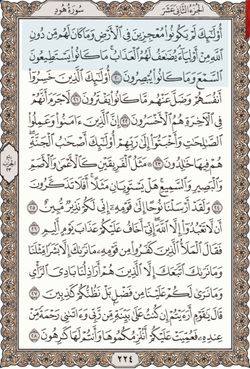 الجزء الثاني عشر سورة هود
أُو۟لَـٰٓئِكَ لَمْ يَكُونُوا۟ مُعْجِزِينَ فِى ٱلْأَرْضِ وَمَا كَانَ لَهُم مِّن دُونِ
ٱللَّهِ مِنْ أَوْلِيَآءَ يُضَـٰعَفُ لَهُمُ ٱلْعَذَابُ مَا كَانُوا۟ يَسْتَطِيعُونَ
ٱلسَّمْعَ وَمَا كَانُوا۟ يُبْصِرُونَ ٢٠ أُو۟لَـٰٓئِكَ ٱلَّذِينَ خَسِرُوٓا۟
أَنفُسَهُمْ وَضَلَّ عَنْهُم مَّا كَانُوا۟ يَفْتَرُونَ ٢١ لَا جَرَمَ أَنَّهُمْ
فِى ٱلْـَٔاخِرَةِ هُمُ ٱلْأَخْسَرُونَ ٢٢ إِنَّ ٱلَّذِينَ ءَامَنُوا۟ وَعَمِلُوا۟
ٱلصَّـٰلِحَـٰتِ وَأَخْبَتُوٓا۟ إِلَىٰ رَبِّهِمْ أُو۟لَـٰٓئِكَ أَصْحَـٰبُ ٱلْجَنَّةِ
هُمْ فِيهَا خَـٰلِدُونَ ٢٣ مَثَلُ ٱلْفَرِيقَيْنِ كَٱلْأَعْمَىٰ وَٱلْأَصَمِّ
وَٱلْبَصِيرِ وَٱلسَّمِيعِ هَلْ يَسْتَوِيَانِ مَثَلًا أَفَلَا تَذَكَّرُونَ
٢٤ وَلَقَدْ أَرْسَلْنَا نُوحًا إِلَىٰ قَوْمِهِۦٓ إِنِّى لَكُمْ نَذِيرٌ مُّبِينٌ ٢٥
أَن لَّا تَعْبُدُوٓا۟ إِلَّا ٱللَّهَ إِنِّىٓ أَخَافُ عَلَيْكُمْ عَذَابَ يَوْمٍ أَلِيمٍ ٢٦
فَقَالَ ٱلْمَلَأُ ٱلَّذِينَ كَفَرُوا۟ مِن قَوْمِهِۦ مَا نَرَىٰكَ إِلَّا بَشَرًا مِّثْلَنَا
وَمَا نَرَىٰكَ ٱتَّبَعَكَ إِلَّا ٱلَّذِينَ هُمْ أَرَاذِلُنَا بَادِىَ ٱلرَّأْىِ
وَمَا نَرَىٰ لَكُمْ عَلَيْنَا مِن فَضْلٍۭ بَلْ نَظُنُّكُمْ كَـٰذِبِينَ ٢٧
قَالَ يَـٰقَوْمِ أَرَءَيْتُمْ إِن كُنتُ عَلَىٰ بَيِّنَةٍ مِّن رَّبِّى وَءَاتَىٰنِى رَحْمَةً مِّنْ
عِندِهِۦ فَعُمِّيَتْ عَلَيْكُمْ أَنُلْزِمُكُمُوهَا وَأَنتُمْ لَهَا كَـٰرِهُونَ ٢٨
٢٢٤